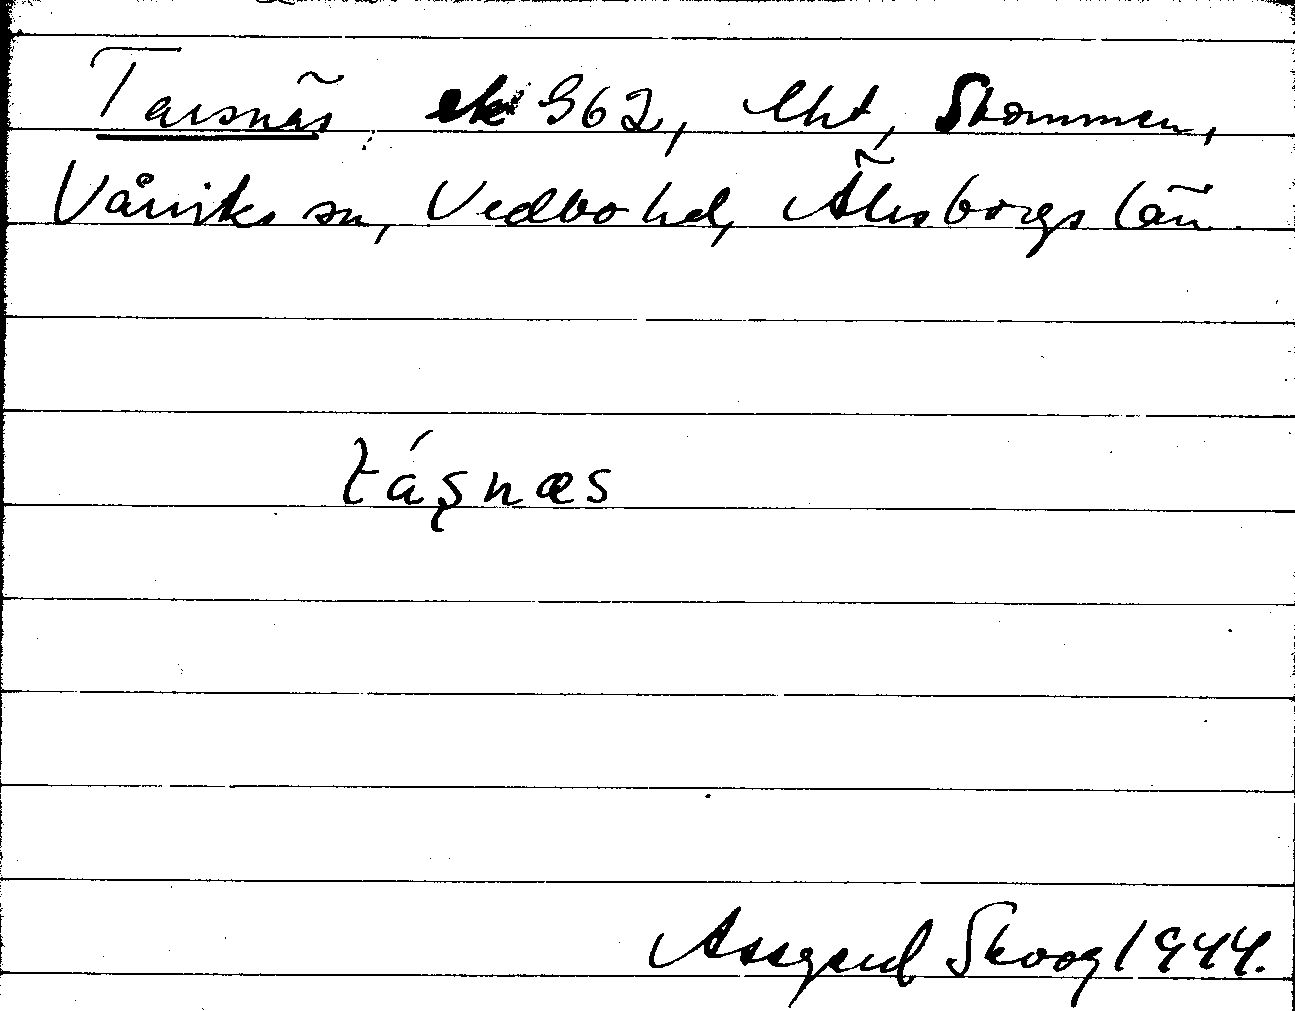 Tarsnäs, ek 962, lht, Stommen,
Vårviks sn, Vedbo hd, Älvsborgs län
tás̨næs
Assgerd Skoog 1944.